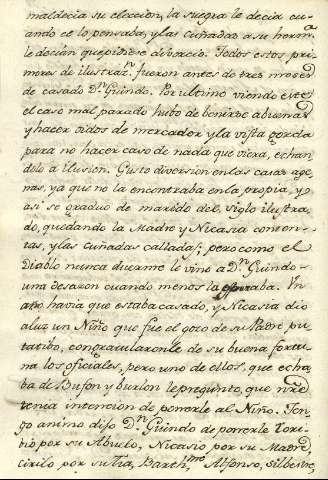 maldecia su eleccion, la suegra le decia cu-
ando ce lo pensaba, y las cuñadas a su herm.ª
le decian que pidiese divorcio. Todos estos pri-
mores de ilustraz.ⁿ fueron antes de tres meses
de casado Dⁿ Guindo. Por ultimo viendo este
el caso mal parado hubo de benirse a buenas
y hacer oidos de mercader y la vista gorda
para no hacer caso de nada que viera, echan
dolo a ilusion. Busco diversion en las casas age-
nas, ya que no la encontraba en la propia, y
asi se graduo de marido del siglo ilustra-
do, quedando la Madre y Nicasia conten-
tas, y las cuñadas calladas; pero como el
Diablo nunca duerme le vino a Dⁿ Guindo
una desazon cuando menos la esperaba. Un
año havia que estaba casado, y Nicasia dio
a luz un Niño que fue el gozo de su Padre pu-
tatibo, congratularonle de su buena fortu
na los oficiales, pero uno de ellos, que echa
ba de Bufon y burlon le pregunto, que nre
tenia intencion de ponerle al Niño. Ten-
go animo dijo Dⁿ Guindo de ponerle Tori-
bio por su Abuelo, Nicasio por su Madre,
Cirilo por su tia, Barth.me Alfonso, Silbestre,